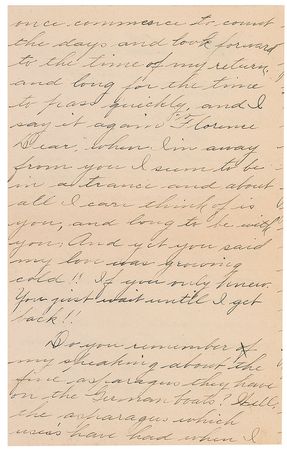 once commence to count
the days and look forward
to the time of my return,
and long for the time
to pass quickly, and I
say it again "Florence
Dear, when I'm away
from you I seem to be
in a trance and about
all I care think of is
you, and long to be with
you. And yet you said
my love was growing
cold!! If you only knew.
You just wait until I get
back!!
Do you remember of
my speaking about the
fine asparagus they have
on the German boats? Well
the asparagus which
have had when I